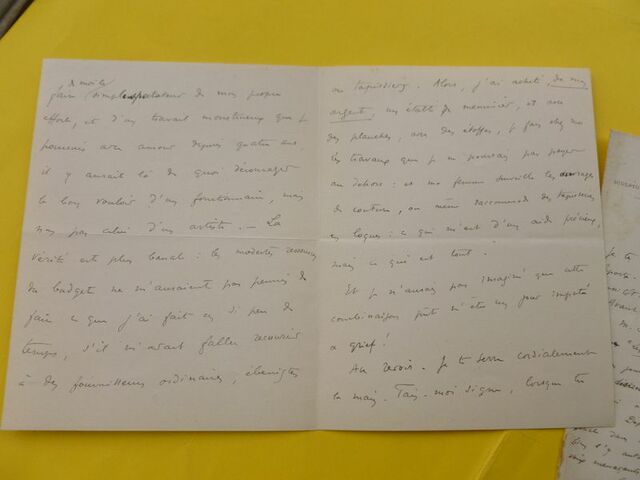 de moitié
faire simple spectateur de mes propres
efforts, et d'un travail monstrueux que je
poursuis avec amour depuis quatre ans
il y aurait là de quoi décourager
le bon vouloir d'un fonctionnaire, mais
non pas celui d'un artiste. — La
vérité est plus banale : les modestes ressources
du budget ne m'auraient pas permis de
faire ce que j'ai fait en si peu de
temps, s'il m'avait fallu recourir
à des fournisseurs ordinaires, ébénistes
ou tapissiers. Alors, j'ai acheté, de mon
argent, un établi de menuisier, et avec
des planches, avec des étoffes, je fais chez moi
les travaux que je ne pourrais pas payer
au dehors : et ma femme surveille les ouvrages
de couture, ou même raccommode des tapisseries
en loques : ce qui m'est d'un aide précieux,
mais ce qui est tout.
Et je n'aurais pas imaginé que cette
combinaison pût m'être un jour imputée
à grief !
Au revoir. Je te serre cordialement
la main. Fais-moi signe, lorsque tu